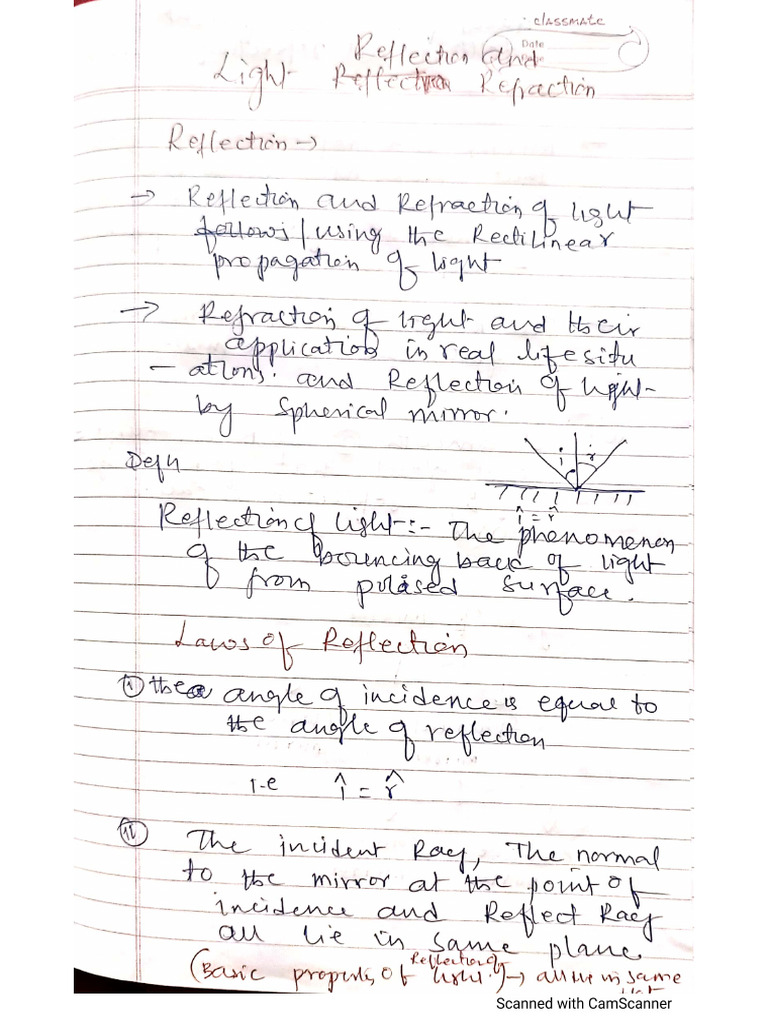 classmate
Date
Reflection and
Light Reflection Refraction
Reflection →
→ Reflection and Refraction of light
follows/using the Rectilinear
propagation of light
→ Refraction of light and their
application in real life situ
- ations. and Reflection of light
by spherical mirror.
i r
Defn
î = r̂
Reflection of light:- The phenomenon
of the bouncing back of light
from polised surface.
Laws of Reflection
(I) the angle of incidence is equal to
the angle of reflection
i-e î = r̂
(II) The incident Ray, The normal
to the mirror at the point of
incidence and Reflect Ray
all lie in same plane.
Reflection of
(Basic property of light.) → all lie in same
Scanned with CamScanner